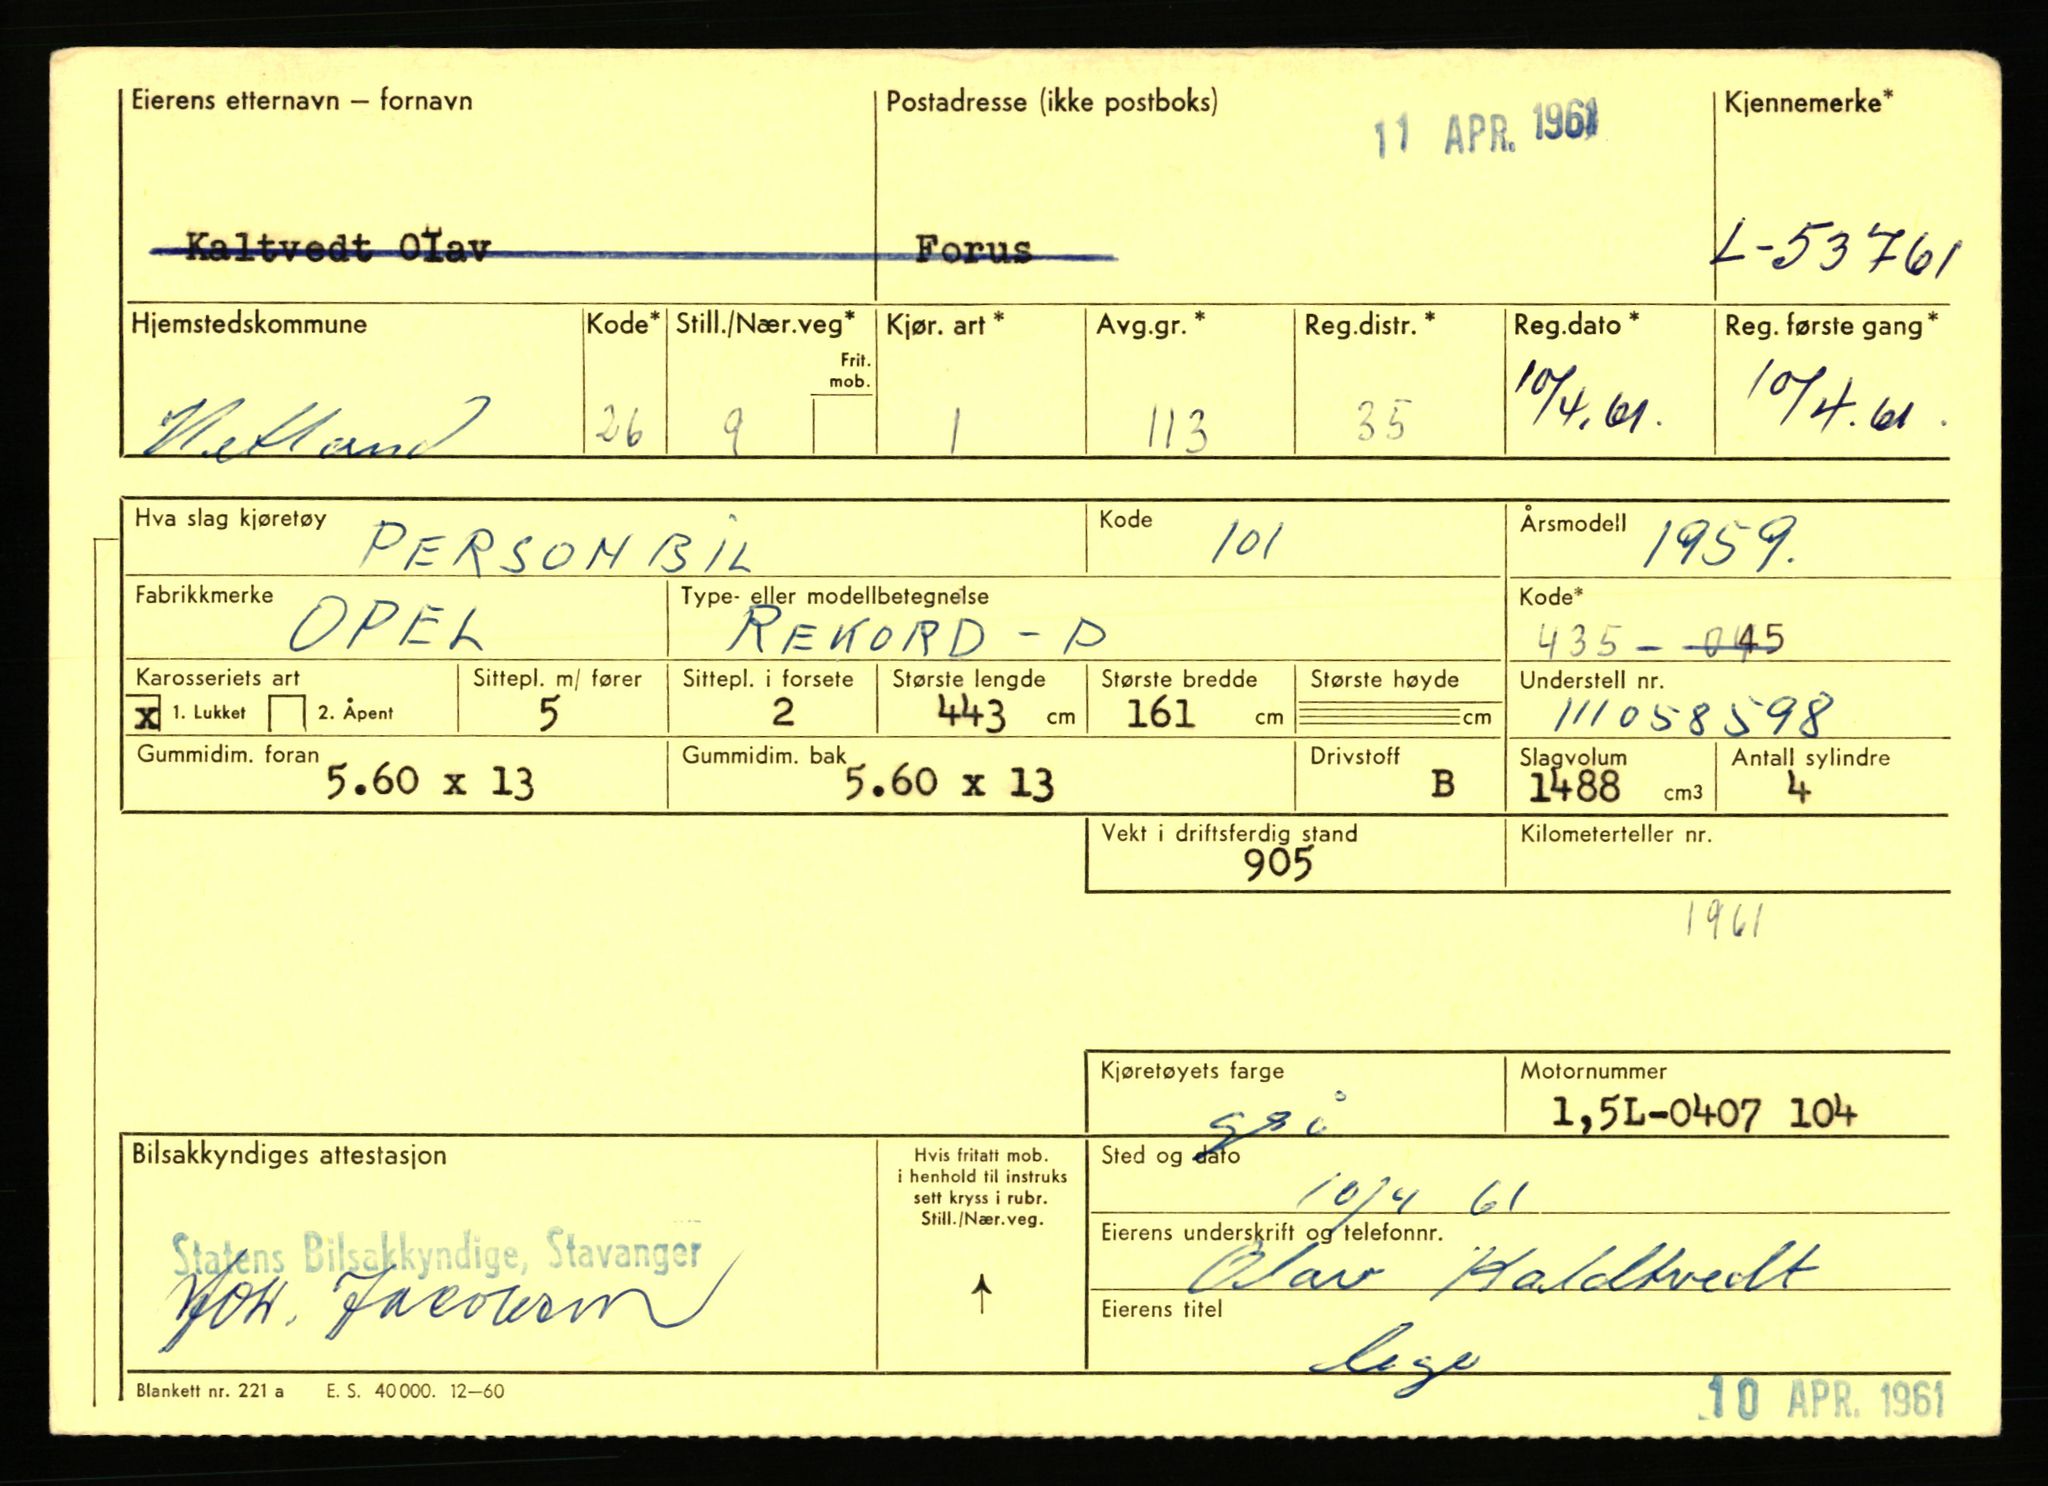 Eierens etternavn – fornavn Postadresse (ikke postboks) Kjennemerke*
11 APR. 1961
Kaltvedt Olav Forus L-53761
Hjemstedskommune Kode* Still./Nær.veg* Kjør. art * Avg.gr. * Reg.distr. * Reg.dato * Reg. første gang*
Frit.
mob.
Hetland 26 9 1 113 35 10/4.61. 10/4.61.
Hva slag kjøretøy PERSONBIL Kode 101 Årsmodell 1959.
Fabrikkmerke OPEL Type- eller modellbetegnelse REKORD - P Kode*
435 - 45
Karosseriets art Sittepl. m/ fører Sittepl. i forsete Største lengde Største bredde Største høyde Understell nr.
x 1. Lukket 2. Åpent 5 2 443 cm 161 cm cm 111058598
Gummidim. foran Gummidim. bak Drivstoff Slagvolum Antall sylindre
5.60 x 13 5.60 x 13 B 1488 cm3 4
Vekt i driftsferdig stand Kilometerteller nr.
905
1961
Kjøretøyets farge Motornummer
grå 1,5L-0407 104
Bilsakkyndiges attestasjon Hvis fritatt mob.
i henhold til instruks
sett kryss i rubr.
Still./Nær.veg.
Sted og dato
10/4 61
Statens Bilsakkyndige, Stavanger
Eierens underskrift og telefonnr.
Olav Kaldtvedt
Joh. Jacobsen
Eierens titel
Blankett nr. 221 a E. S. 40 000. 12—60
10 APR. 1961